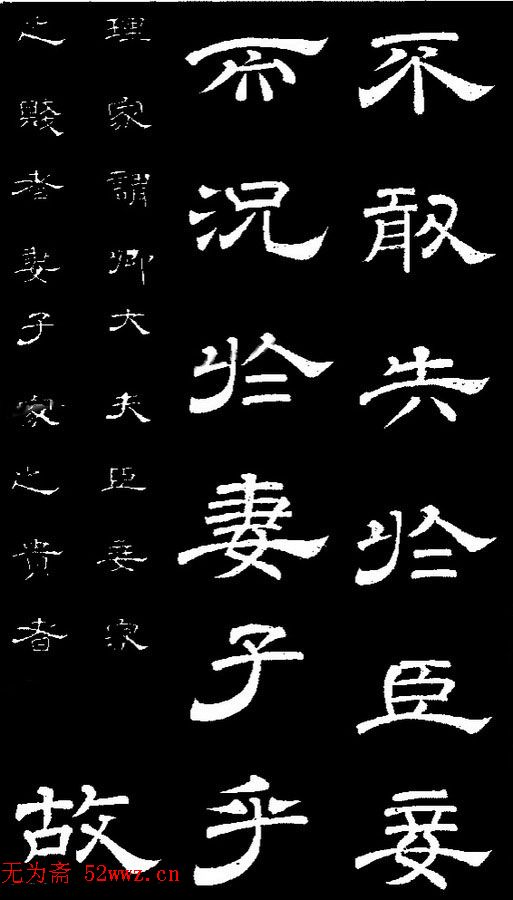 不敢失於臣妾
而況於妻子乎
理家謂卿大夫臣妾家
之賤者妻子家之貴者
故
无为斋 52wwz.cn